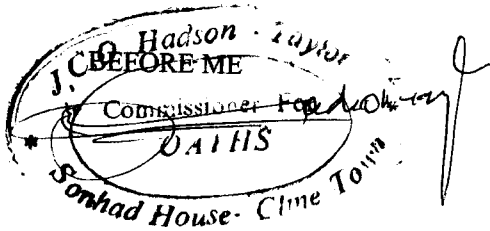 J. C. O. Hadson - Taylor
BEFORE ME
Commissioner For
OATHS
* Sonhad House - Cline Town